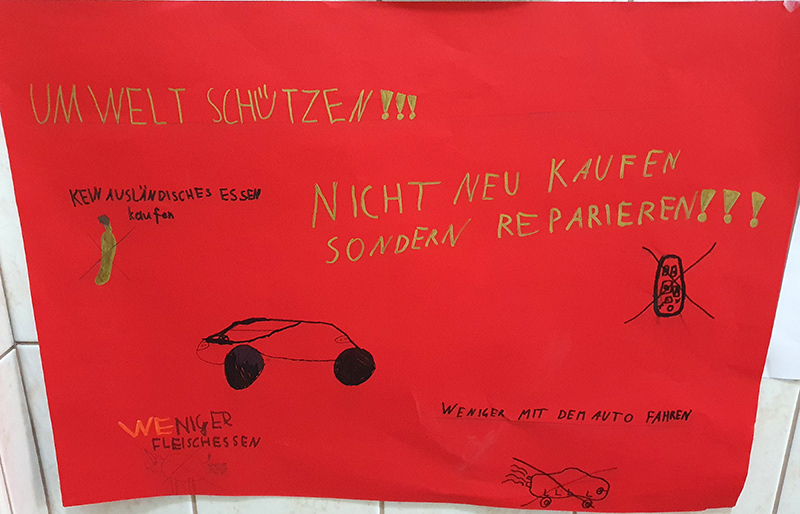 UMWELT SCHÜTZEN!!!
KEIN AUSLÄNDISCHES ESSEN
kaufen
NICHT NEU KAUFEN
SONDERN REPARIEREN!!!
WENIGER
FLEISCHESSEN
WENIGER MIT DEM AUTO FAHREN